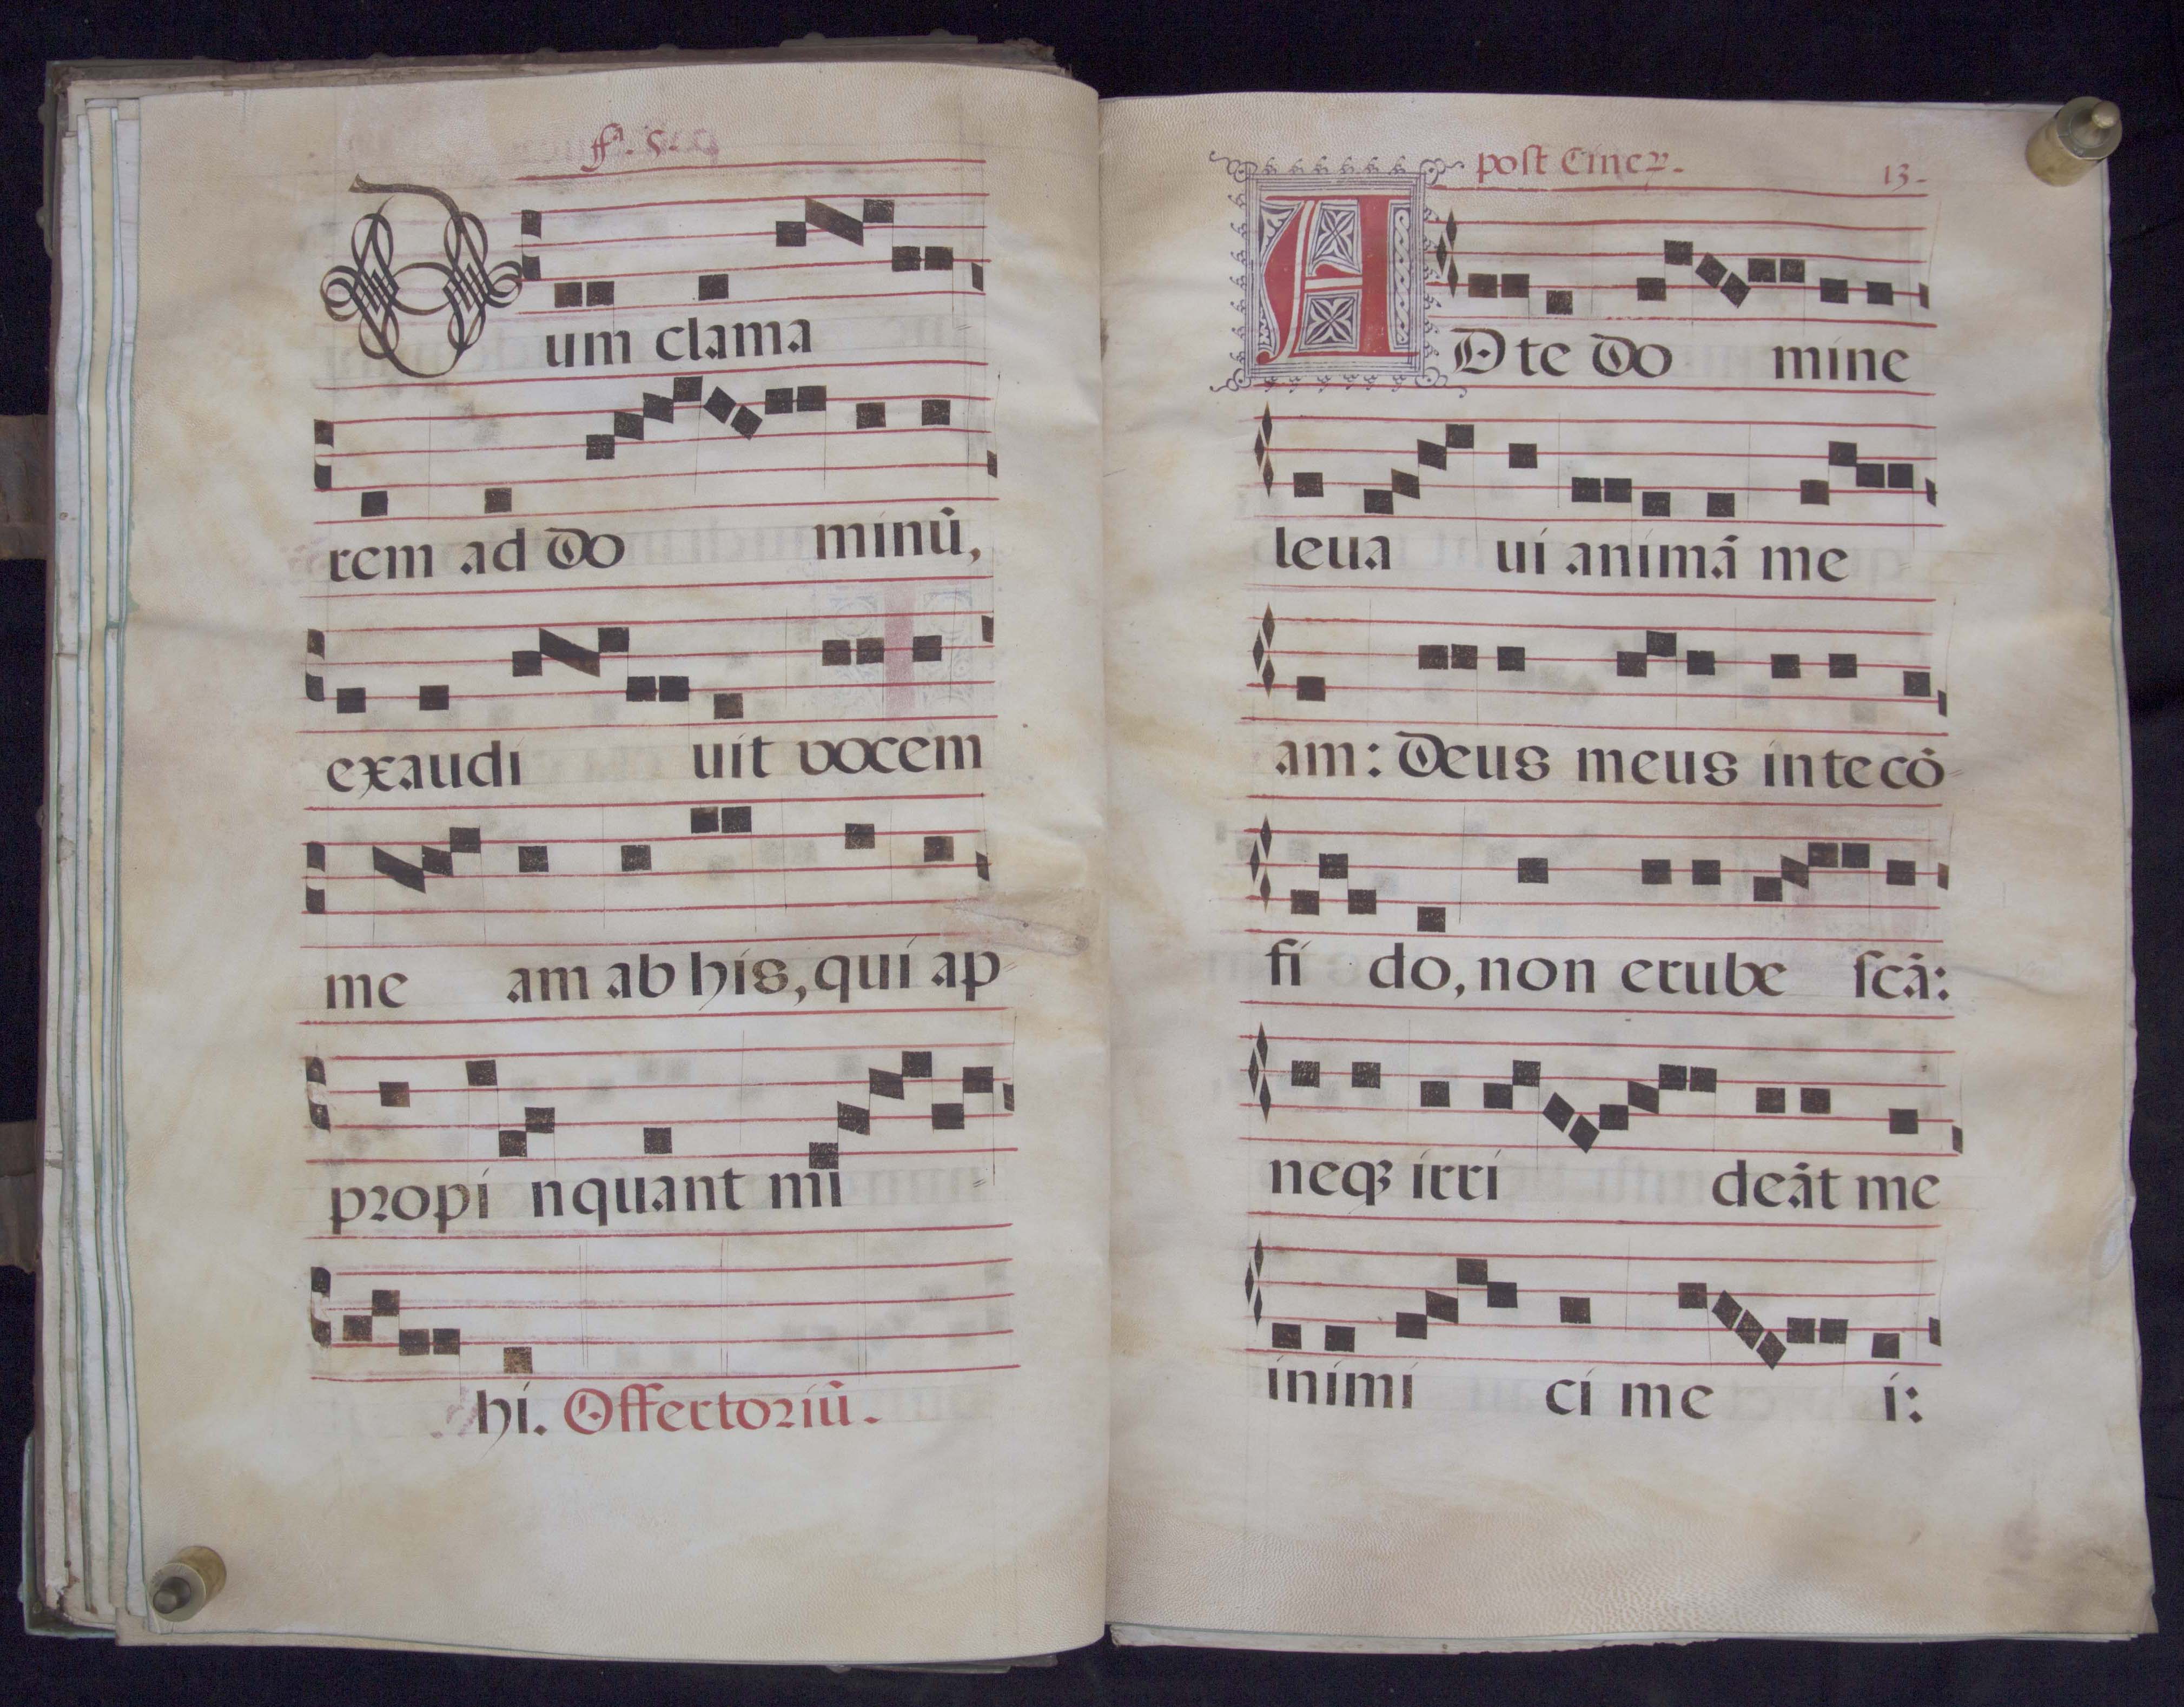 fª. 5.
Dum clama
rem ad do minū,
exaudi uit vocem
me am ab his, qui ap
propi nquant mi
hi. Offertoriū.
post Cineꝝ. 13.
AD te do mine
leua ui animā me
am: Deus meus in te cō
fi do, non erube ſcā:
neqꝫ irri deāt me
inimi ci me i: